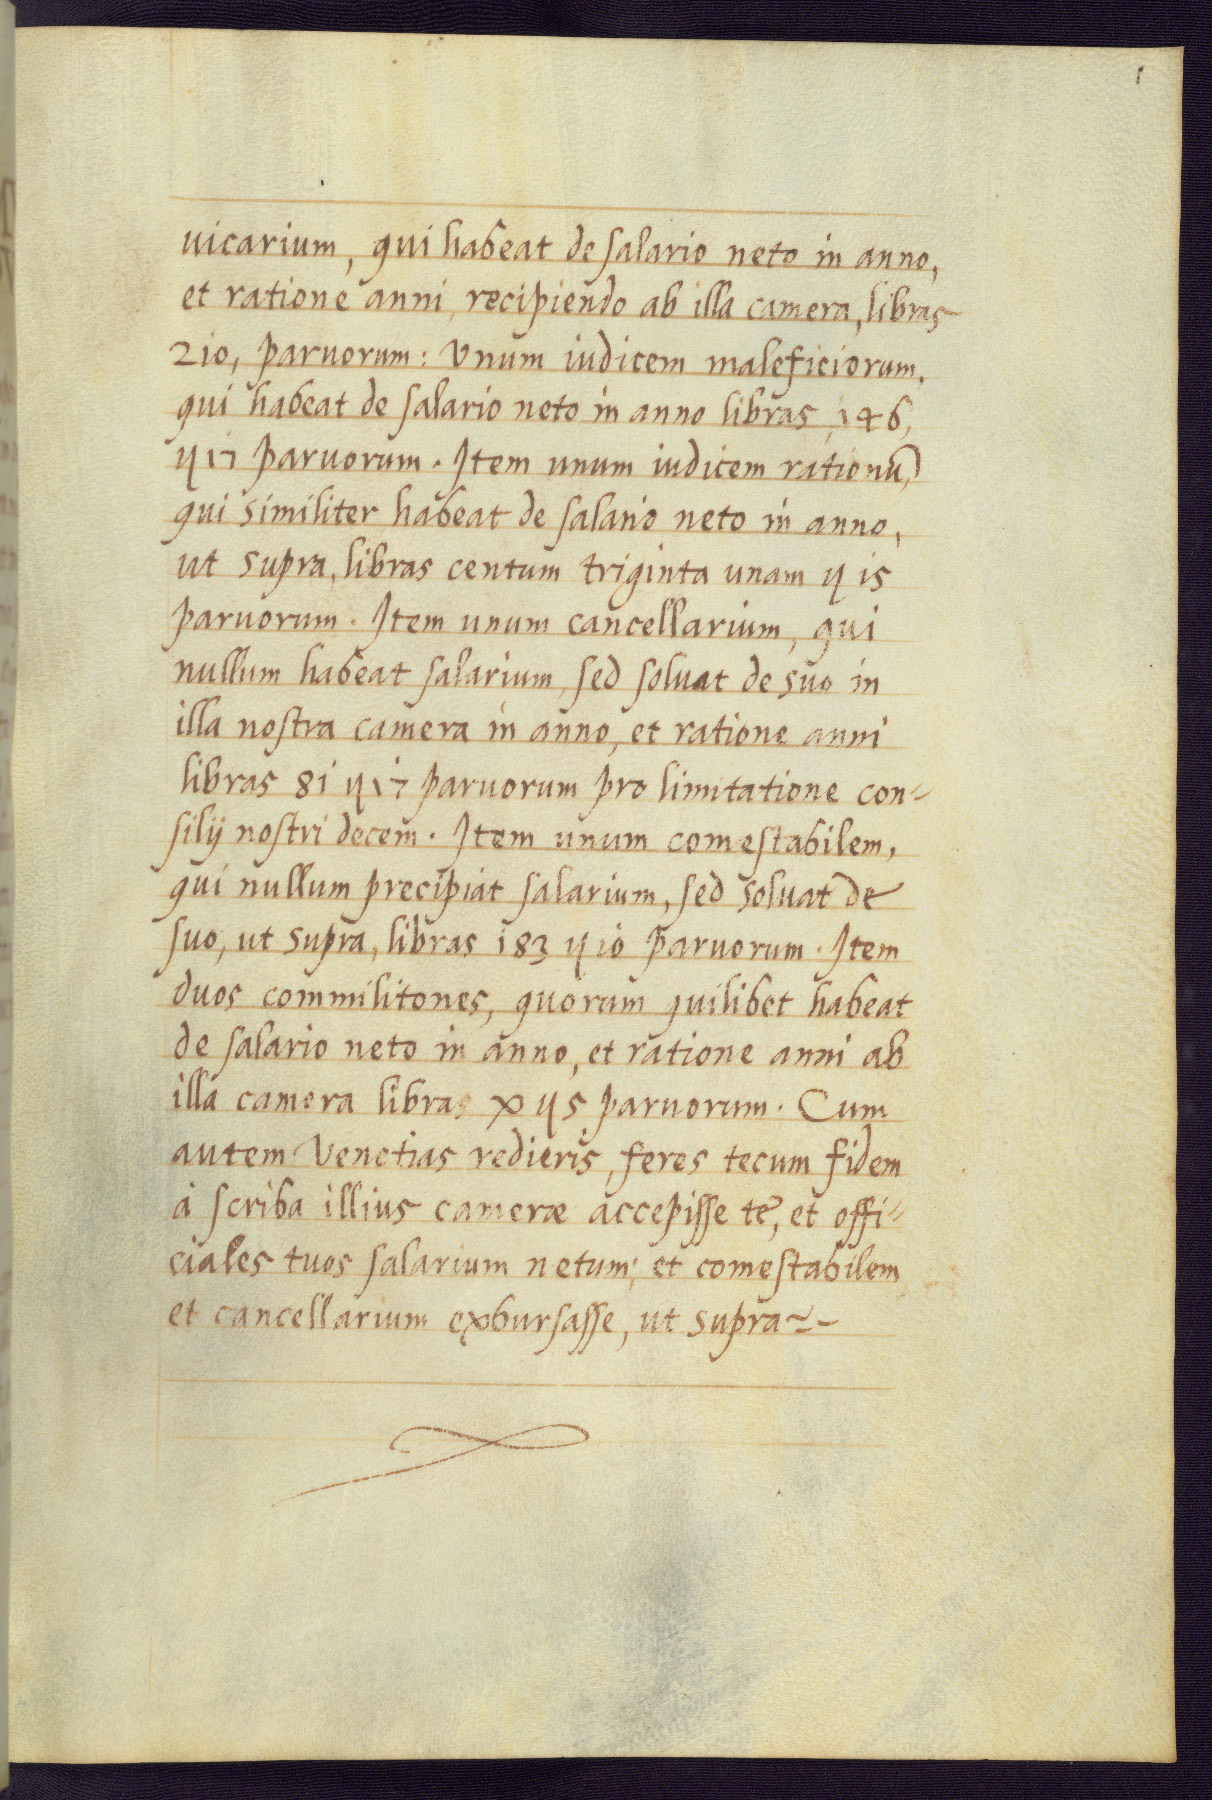 1
uicarium, qui habeat de salario neto in anno,
et ratione anni, recipiendo ab illa camera, libras
210, paruorum: Vnum iudicem maleficiorum,
qui habeat de salario neto in anno libras 146,
ῃ 17 paruorum. Item unum iudicem rationũ,
qui similiter habeat de salario neto in anno,
ut supra, libras centum triginta unam ῃ 15
paruorum. Item unum cancellarium, qui
nullum habeat salarium, sed soluat de suo in
illa nostra camera in anno, et ratione anni
libras 81 ῃ 17 paruorum pro limitatione con-
silij nostri decem. Item unum comestabilem,
qui nullum precipiat salarium, sed soluat de
suo, ut supra, libras 183 ῃ 10 paruorum. Item
duos commilitones, quorum quilibet habeat
de salario neto in anno, et ratione anni ab
illa camera libras x ῃ 5 paruorum. Cum
autem Venetias redieris, feres tecum fidem
à scriba illius cameræ accepisse te, et offi-
ciales tuos salarium netum; et comestabilem
et cancellarium exbursasse, ut supra~-